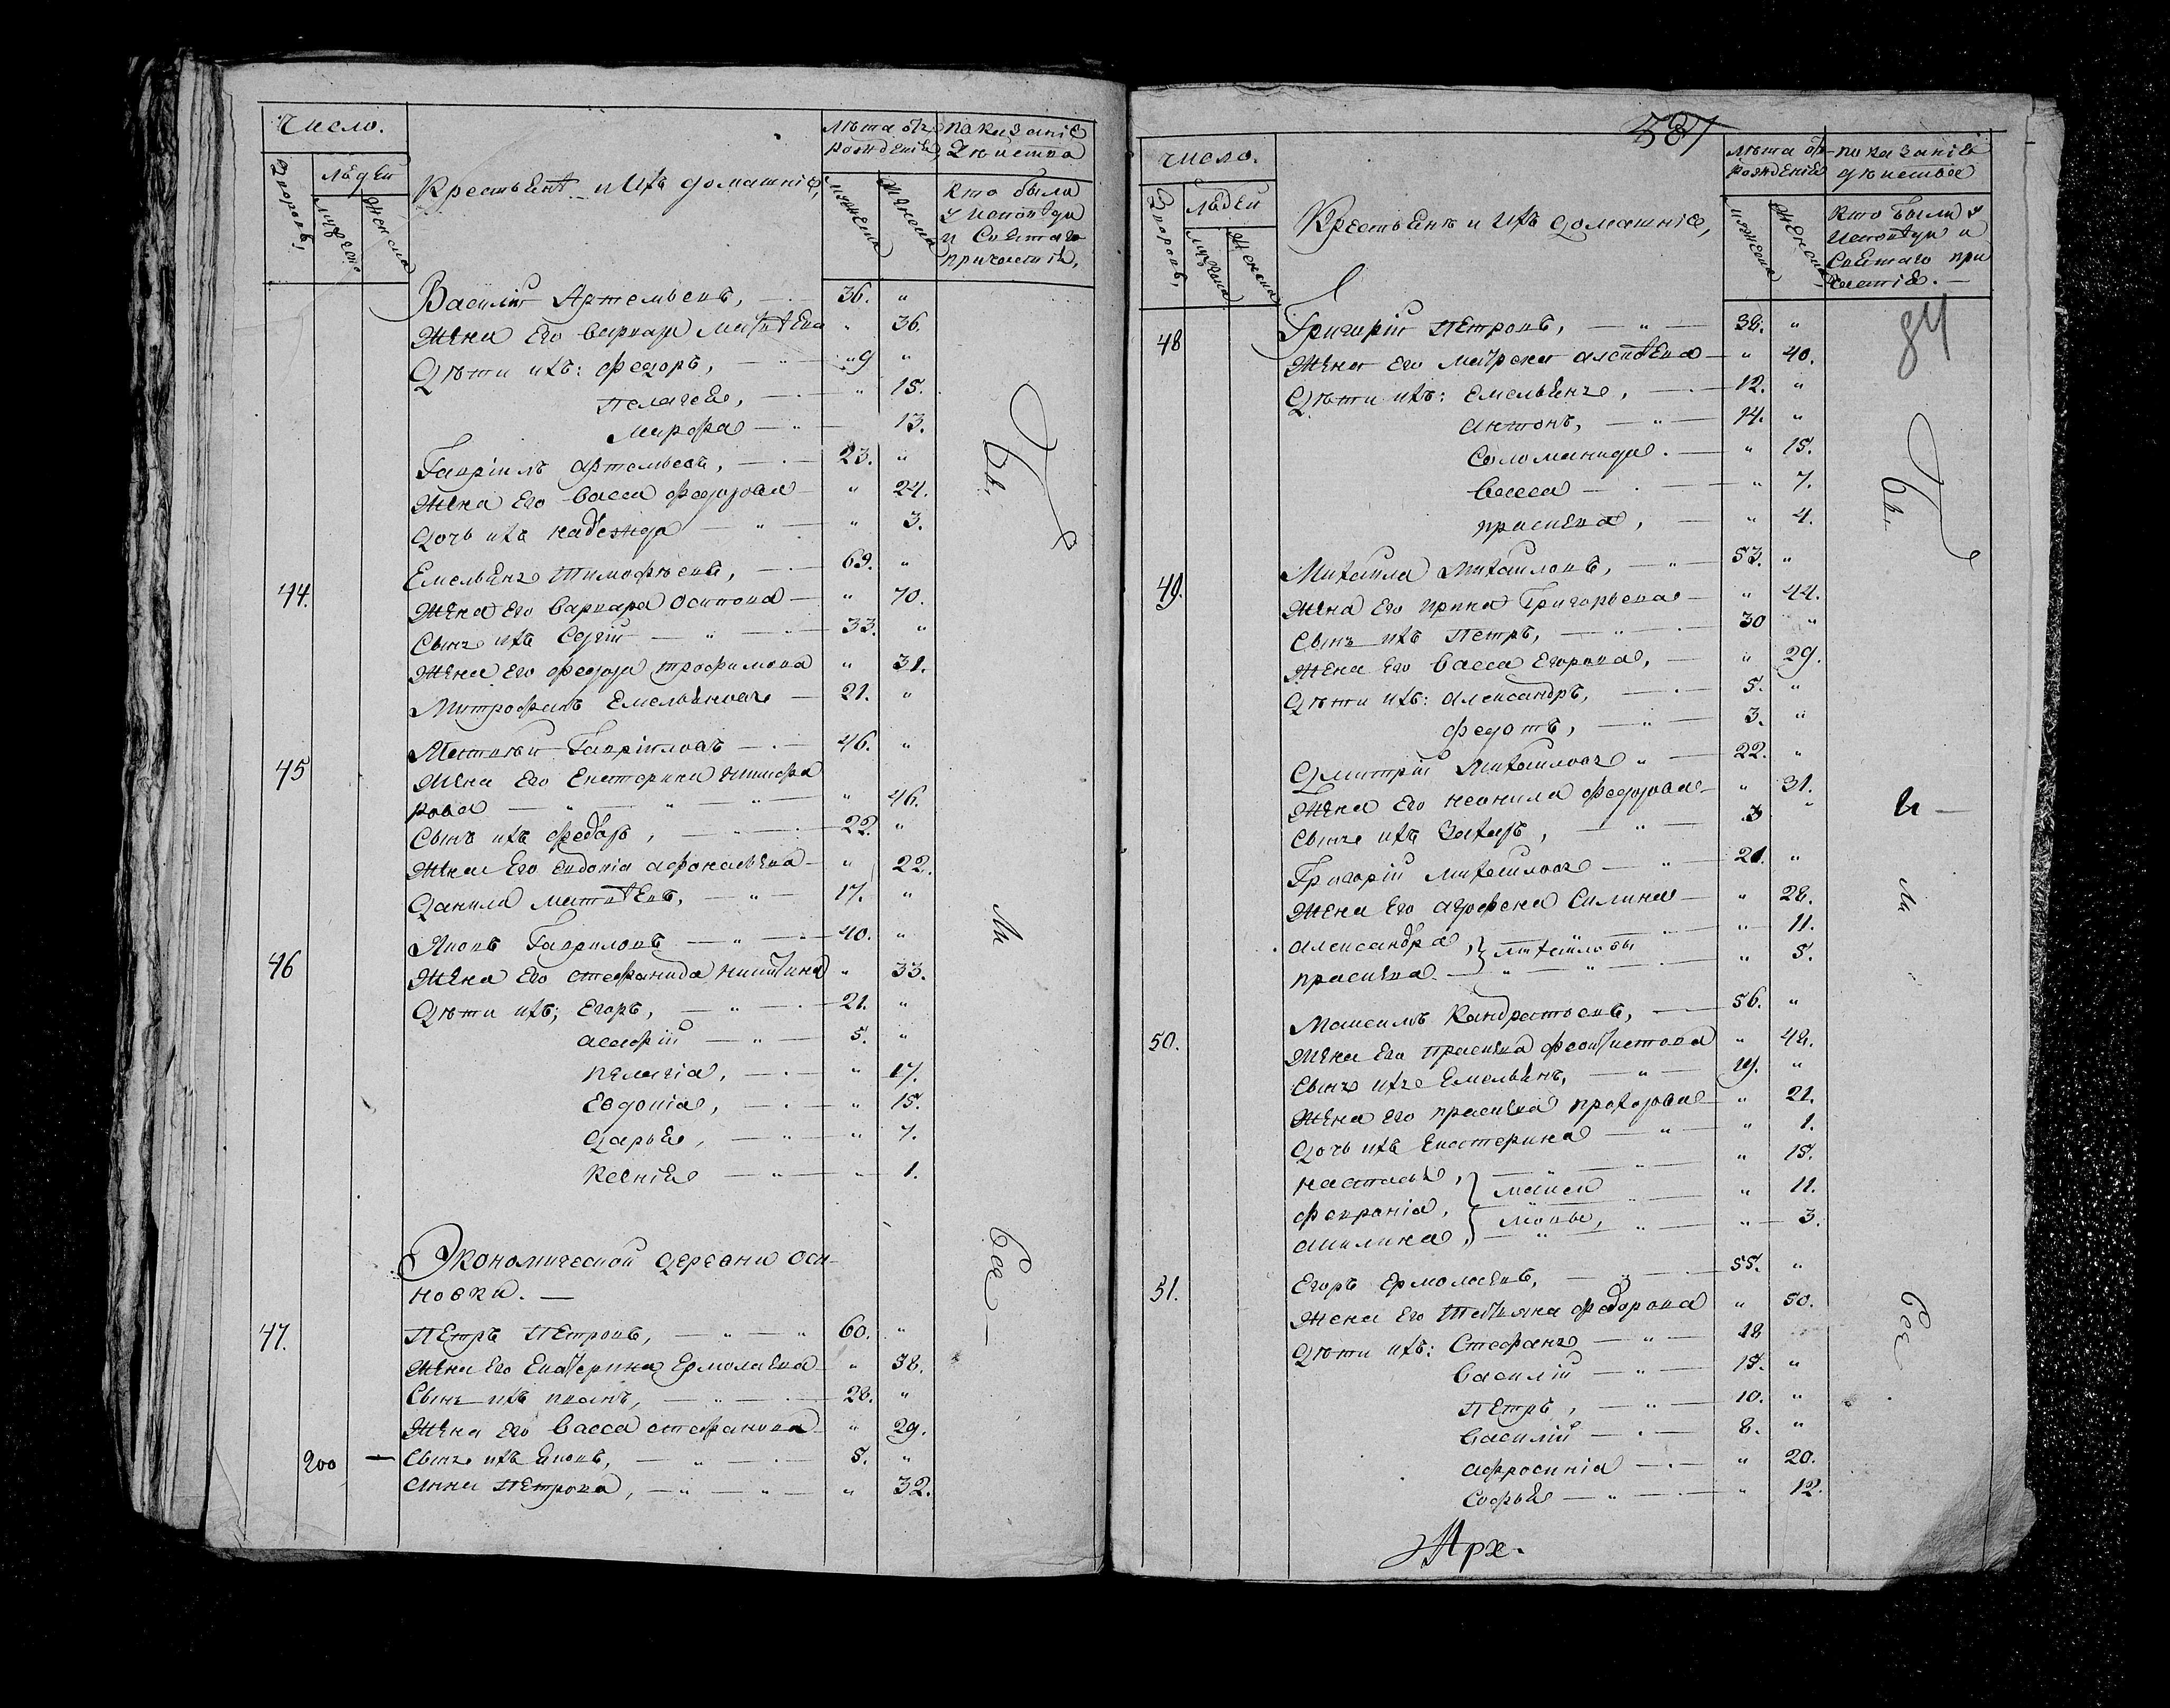 Число.
Дворовъ,
людей
мужеска
женска
Крестьянѣ и ихъ домашніе,
Лѣта отъ рожденія
мужеска
женска
показаніе дѣйства
Кто были
у исповѣди
и Святаго
причастія,
Василій Артемьевъ, 36. "
Жена Его варвара Матвѣева " 36.
Дѣти ихъ: федоръ, 9 "
пелагея, " 15.
Марфа 13.
Гавріилъ Артемьевъ, 23. "
Жена Его васса федорова " 24.
дочь ихъ надежда " 3.
44. Емельянъ Тимофѣевъ, 69. "
Жена Его варвара Осипова " 70.
Сынъ ихъ Сергій 33. "
Жена Его федора трофимова " 31.
Митрофанъ Емельяновъ 21. "
45 Матвѣй Гавріиловъ 46. "
Жена Его Екатерина никифо
рова " 46.
Сынъ ихъ федоръ, 22. "
Жена Его Евдокія афонасьева " 22.
Данила матвѣевъ, 17. "
46 Яковъ Гавриловъ 40. "
Жена Его стефанида никитина " 33.
Дѣти ихъ; Егоръ, 21. "
5. "
пелагія, " 17.
Евдокіа, " 15.
дарья, " 7.
Ксенія " 1.
Экономической деревни Оси-
новки.
47. Петръ Петровъ, 60. "
Жена Его Екатерина Ермолаева " 58.
Сынъ ихъ иванъ, 28. "
Жена Его васса стефанова " 29.
200 Сынъ ихъ яковъ, 5. "
Анна Петрова, " 32.
Бы
ли
Все
537
84
число.
Дворовъ,
людей
мужеска
женска
Крестьянѣ и ихъ домашніе,
лѣта отъ рожденія
мужеска
женска
показаніе дѣйства
кто были у
исповѣди и
Святаго при
частія.
48 Григорій Петровъ, 38. "
Жена Его матрена " 40.
Дѣти ихъ: Емельянъ, 12. "
антонъ, 14. "
Соломанида. " 15.
васса " 7.
прасковя, " 4.
49. Михаила Михаиловъ, 53. "
Жена Его ирина Григорьева " 44.
Сынъ ихъ Петръ, 30 "
Жена Его васса Егорова, " 29.
Дѣти ихъ: александръ, 5. "
федотъ, 3. "
Дмитрій Михаиловъ 22. "
Жена Его неонила федорова " 31.
Сынъ ихъ Захаръ, 3 "
Григорій михаиловъ 21. "
Жена Его агрофена Силина " 28.
александра } михаиловы " 11.
прасковя " 5.
50. Максимъ Кандратьевъ, 56. "
Жена Его прасковя феоктистова " 48.
Сынъ ихъ Емельянъ, 19. "
Жена Его прасковя прохорова " 21.
Дочь ихъ Екатерина " 1.
настасья, } макси " 15.
февронія, } мовы, " 11.
акилина, " 3.
51. Егоръ Ермолаевъ, 55. "
Жена Его Татьяна федорова " 50.
Дѣти ихъ: Стефанъ 18
Василій 15. "
Петръ, 10. "
Василій 8. "
афросинія " 20.
Софья " 12.
Бы
ли
Все
Арх.